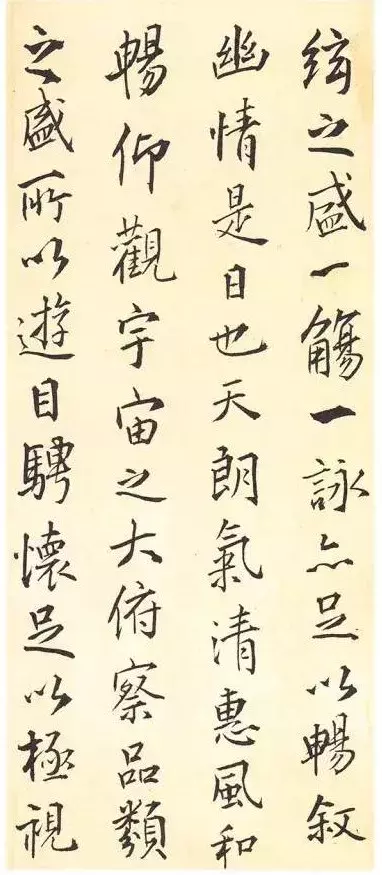 絃之盛一觴一詠亦足以暢叙
幽情是日也天朗氣清惠風和
暢仰觀宇宙之大俯察品類
之盛所以遊目騁懷足以極視